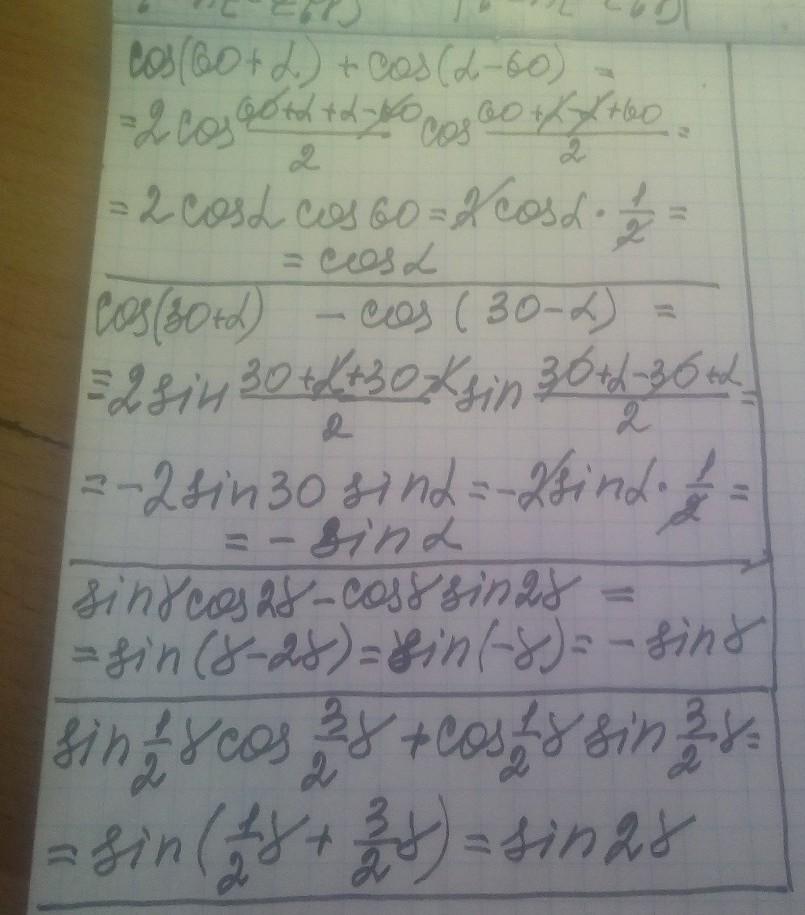 cos(60+α) + cos(α-60) =
= 2 cos (60+α+α-60)/2 cos (60+α-α+60)/2 =
= 2 cosα cos 60 = 2 cosα · 1/2 =
= cosα
cos(30+α) - cos (30-α) =
= 2 sin (30+α+30-α)/2 sin (30+α-30+α)/2 =
= -2 sin 30 sin α = -2 sin α · 1/2 =
= - sin α
sin γ cos 2γ - cos γ sin 2γ =
= sin (γ-2γ) = sin (-γ) = - sin γ
sin 1/2 γ cos 3/2 γ + cos 1/2 γ sin 3/2 γ =
= sin (1/2 γ + 3/2 γ) = sin 2γ